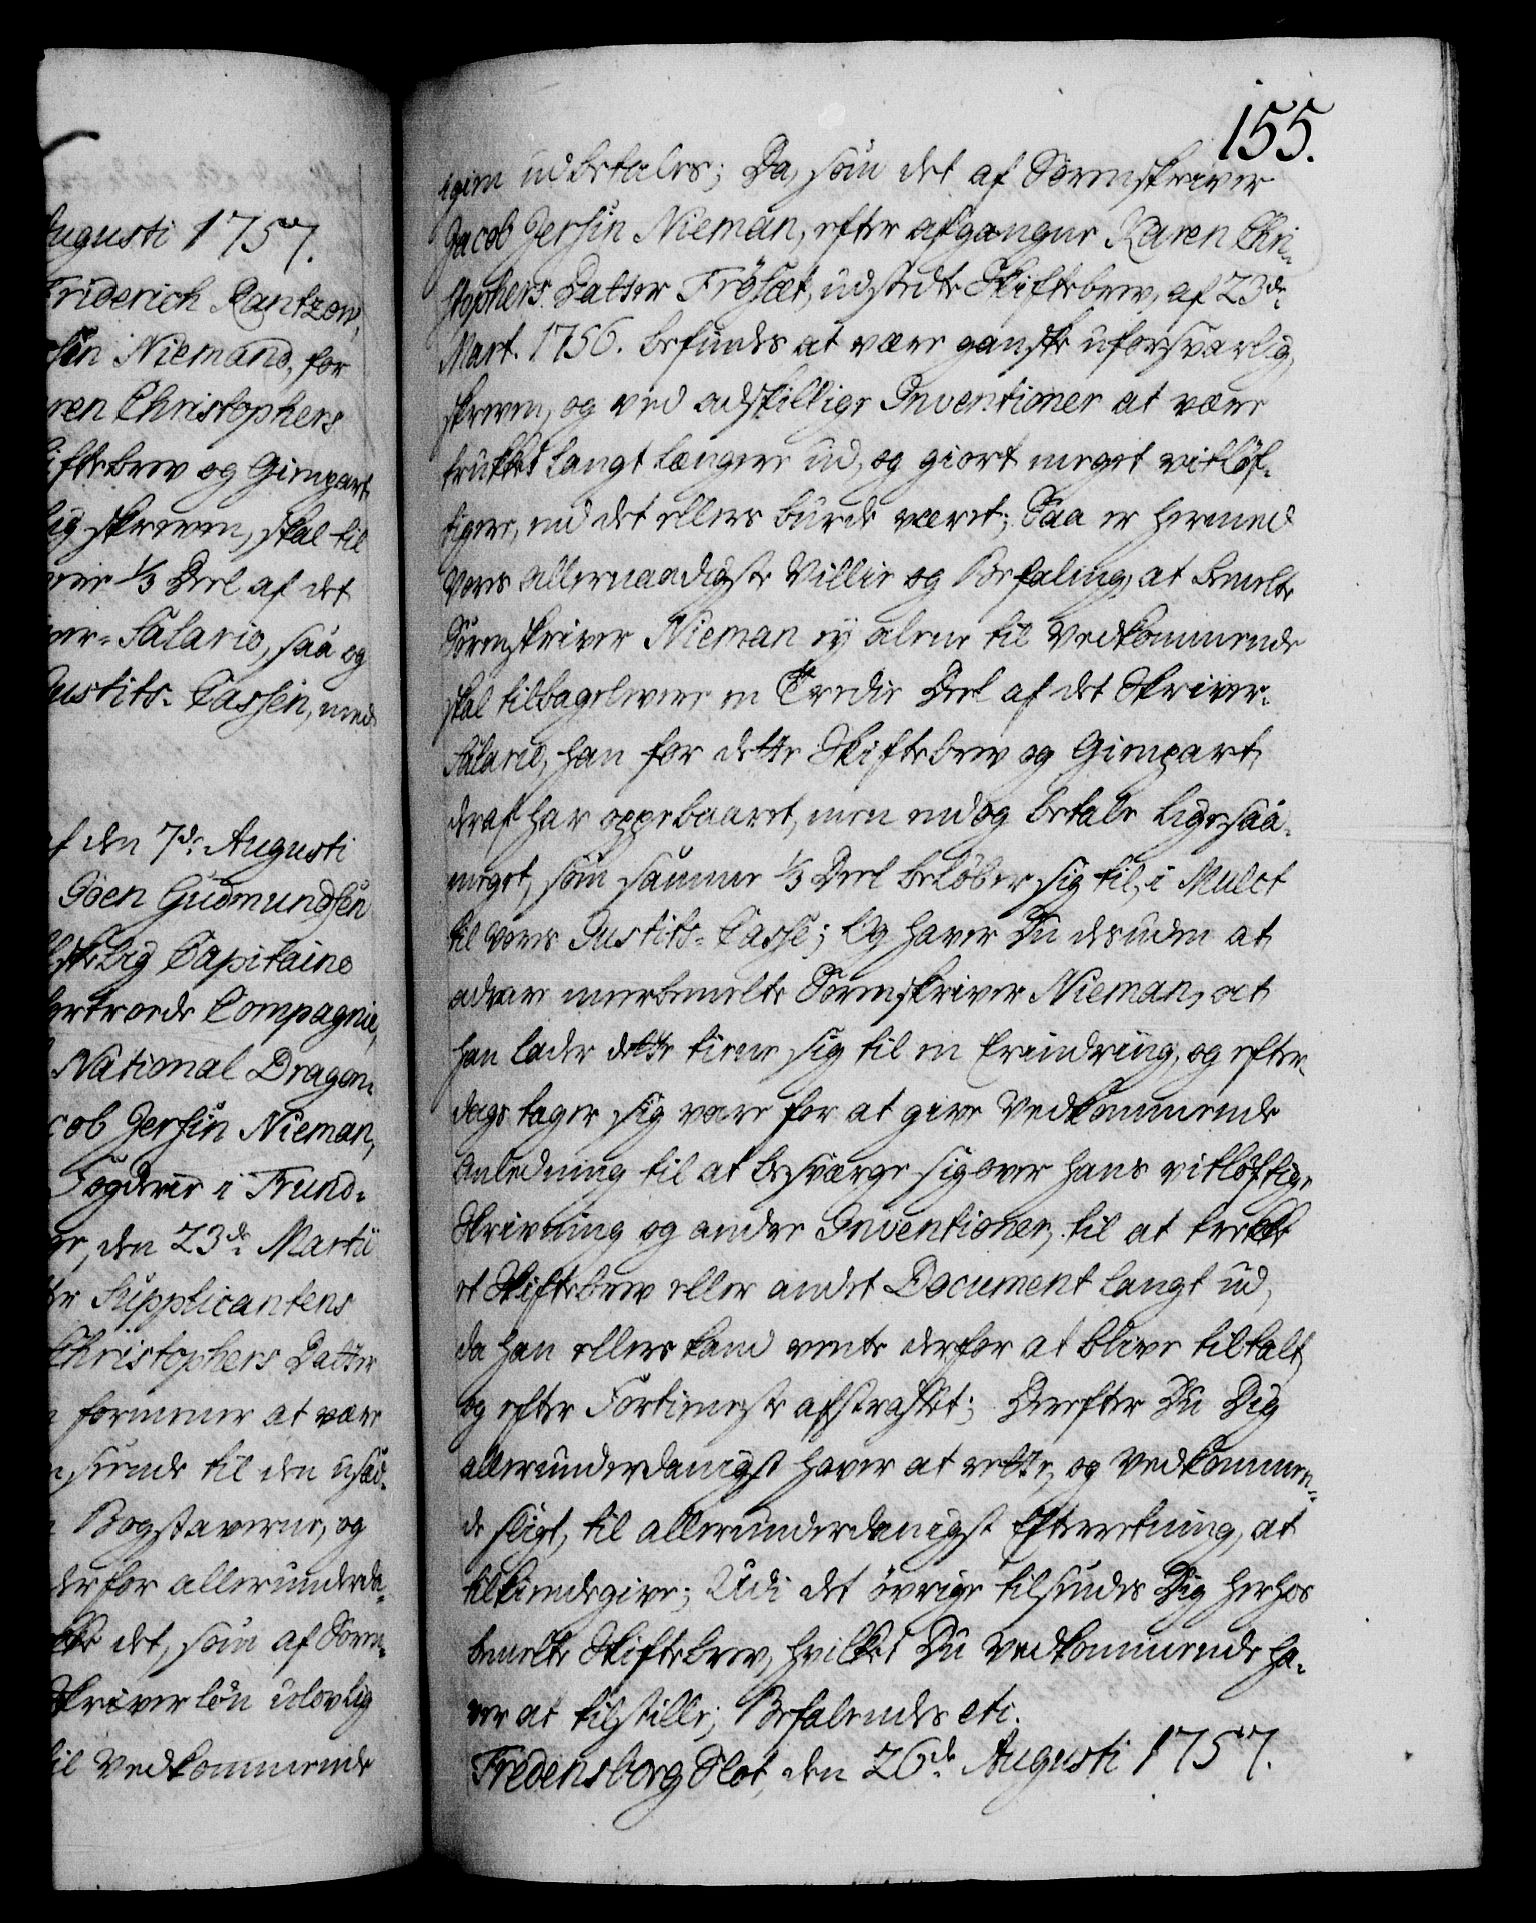 ugusti 1757.
Friderich Rantzow,
sin Niemand, for
ren Christophers
iftebrev og Gienpart
lig skreven, skal til
1/3 Deel af det
ver-Salario, saa og
Justits-Cassen, med
af den 7de Augusti
Joen Gudmundsen
Capitaine
Compagnie,
National Dragon-
cob Jersin Nieman,
Fogderie i Trund-
den 23de Martii
Supplicantens
Christophers Datter
formener at være
seende til den usæd-
Bogstaverne, og
derfor allerunderda-
det, som af Soren-
Skriverløn ulovlig
til Vedkommende
155.
igien udbetales; Da, som det af Sorenskriver
Jacob Jersin Nieman, efter afgangne Karen Chri-
stophers Datter Frøsæt, udstedte Skiftebrev, af 23de
Mart. 1756. befindes at være ganske uforsvarlig
skreven, og ved adskillige Inventioner at være
trukket langt længere ud, og giort meget vitløf-
tigere, end det ellers burde været; Saa er hermed
Vores allernaadigste Villie og Befaling, at bemelte
Sorenskriver Nieman ey alene til Vedkommende
skal tilbagelevere en Tredie Deel af det Skriver-
Salario, han for dette Skiftebrev og Gienpart
deraf har oppebaaret, men endog betale ligesaa-
meget, som samme 1/3 Deel beløber sig til, i Mulct
til Vores Justits-Casse; Og haver Du desuden at
advare meerbemelte Sorenskriver Nieman, at
han lader dette tiene sig til en Erindring, og efter-
dags tager sig vare for at give Vedkommende
Anledning til at besværge sig over hans vitløftige
Skrivning og andre Inventioner, til at trekke
et Skiftebrev eller andet Document langt ud,
da han ellers kand vente derfor at blive tiltalt
og efter Fortieneste afstraffet; Derefter Du Dig
allerunderdanigst haver at rette, og Vedkommen-
de sligt, til allerunderdanigst Efterretning, at
tilkiendegive; Udi det øvrige tilsendes Dig herhos
bemelte Skiftebrev, hvilket Du Vedkommende ha-
ver at tilstille; Befalendes etc.
Fredensborg Slot, den 26de Augusti 1757.